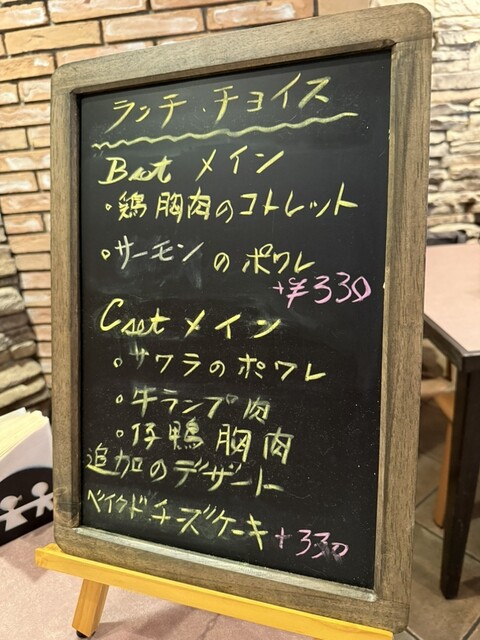 ランチ.チョイス
Bset メイン
・鶏胸肉のコトレット
・サーモンのポワレ
+¥330
Cset メイン
・サワラのポワレ
・牛ランプ肉
・仔鴨胸肉
追加のデザート
ベイクドチーズケーキ+330